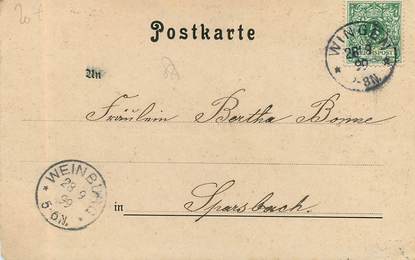 Postkarte
WINGEN
99
7-8N.
An
Fräulein Bertha Bonne
WEINBURG
28
9
99
5-6N.
in Sparsbach.